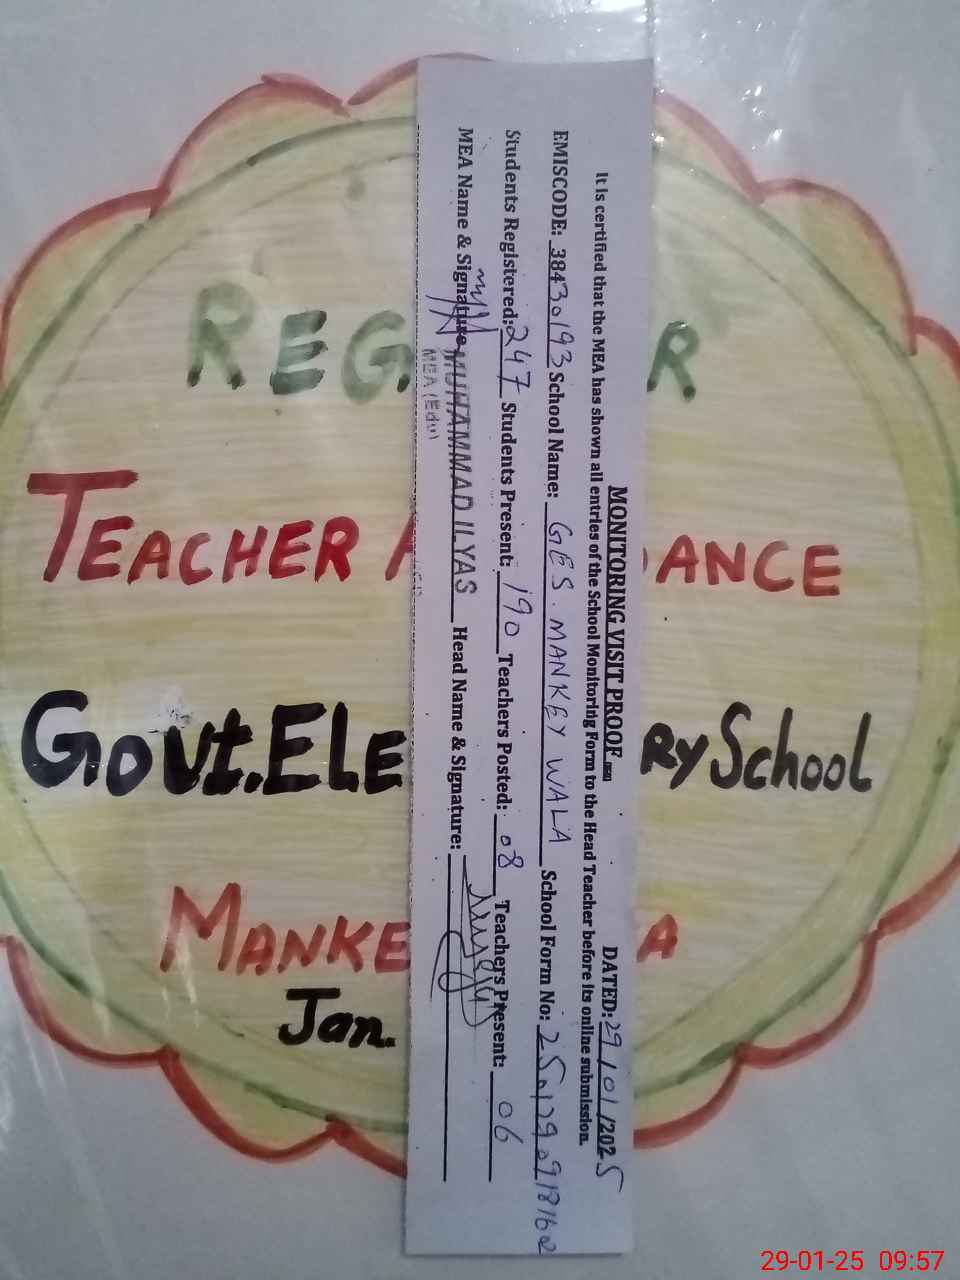 REG
R
TEACHER A
DANCE
Govt. ELE
RY School
MANKE
A
Jan.
MONITORING VISIT PROOF
DATED: 29/01/2025
It is certified that the MEA has shown all entries of the School Monitoring Form to the Head Teacher before its online submission.
EMISCODE: 38430193 School Name: GES. MANKEY WALA School Form No:
Students Registered: 247 Students Present: 190 Teachers Posted: 08 Teachers Present: 06
MEA Name & Signature MUHAMMAD ILYAS Head Name & Signature:
MEA (Edu)
29-01-25 09:57